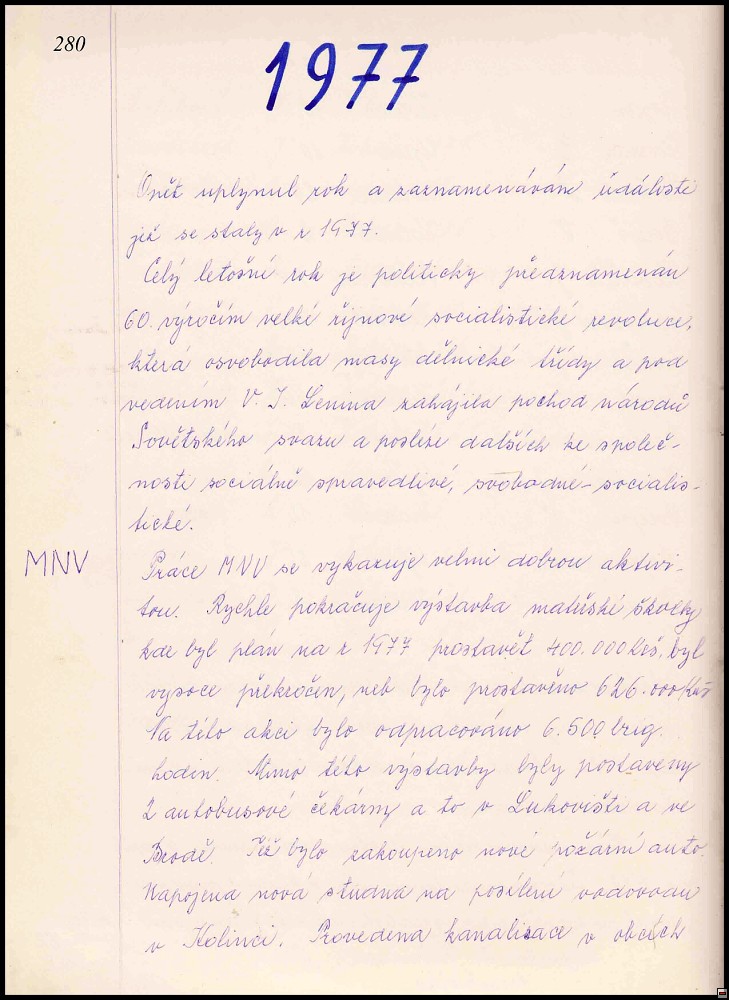 280
1977
Opět uplynul rok a zaznamenávám údálosti
jež se staly v r 1977.
Celý letošní rok je politicky předznamenán
60. výročím velké říjnové socialistické revoluce,
která osvobodila masy dělnické třídy a pod
vedením V. I. Lenina zahájila pochod národů
Sovětského svazu a posléze dalších ke společ-
nosti sociálně spravedlivé, svobodné - socialis-
tické.
MNV
Práce MNV se vykazuje velmi dobrou aktivi-
tou. Rychle pokračuje výstavba mateřské školky
kde byl plán na r 1977 prostavět 400.000 Kčs, byl
vysoce překročen, neb bylo prostavěno 626.000 Kčs
Na této akci bylo odpracováno 6.500 brig.
hodin. Mimo této výstavby byly postaveny
2 autobusové čekárny a to v Lukovišti a ve
Brodě. Též bylo zakoupeno nové požární auto.
Napojena nová studna na posílení vodovodu
v Holinci. Provedena kanalisace v obcích